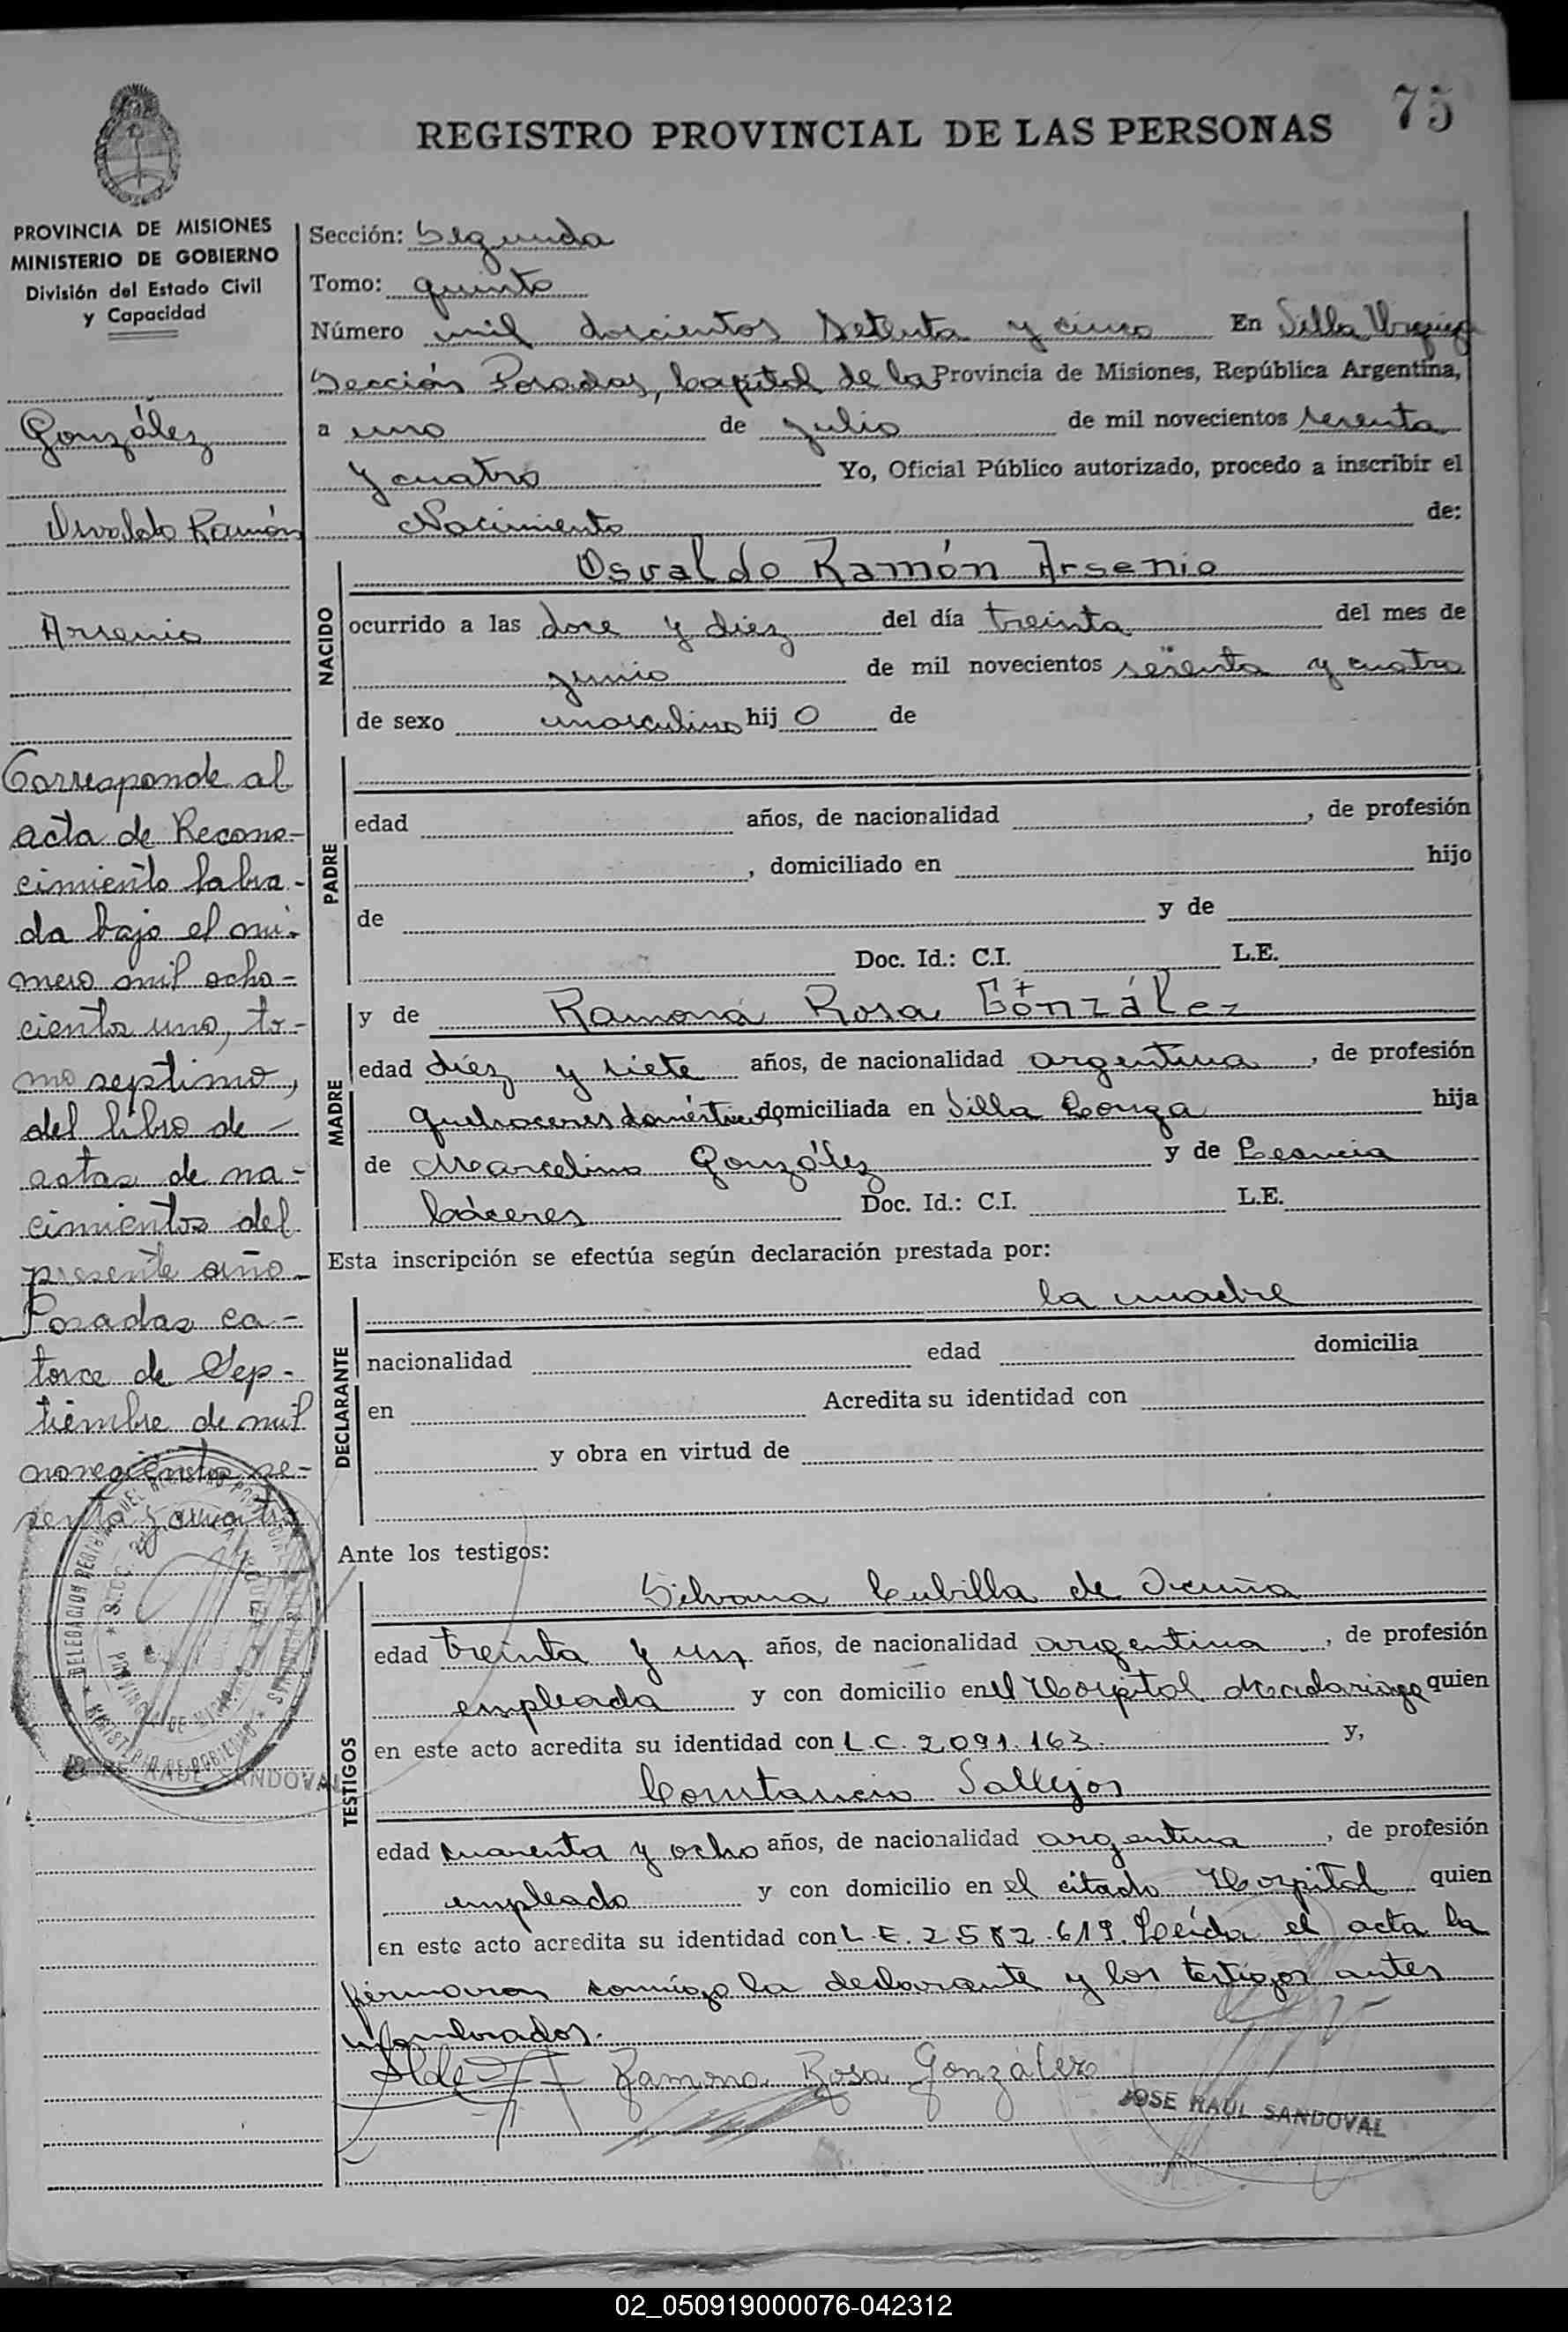 75
REGISTRO PROVINCIAL DE LAS PERSONAS
PROVINCIA DE MISIONES
MINISTERIO DE GOBIERNO
División del Estado Civil
y Capacidad
González
Osvaldo Ramón
Arsenio
Corresponde al
acta de Recono-
cimiento labra-
da bajo el nú-
mero mil ocho-
cientos uno, to-
mo septimo,
del libro de
actas de na-
cimientos del
presente año
Posadas ca-
torce de Sep-
tiembre de mil
novecientos se-
senta y cuatro
JOSE RAUL SANDOVAL
Sección: Segunda
Tomo: quinto
Número mil doscientos setenta y cinco En Villa Urquiza
Sección Posadas, Capital de la Provincia de Misiones, República Argentina,
a uno de julio de mil novecientos sesenta
y cuatro Yo, Oficial Público autorizado, procedo a inscribir el
Nacimiento de:
NACIDO
Osvaldo Ramón Arsenio
ocurrido a las doce y diez del día treinta del mes de
junio de mil novecientos sesenta y cuatro
de sexo masculino hijo de
PADRE
edad años, de nacionalidad , de profesión
, domiciliado en hijo
de y de
Doc. Id.: C.I. L.E.
MADRE
y de Ramona Rosa González
edad diez y siete años, de nacionalidad argentina, de profesión
quehaceres domésticos domiciliada en Villa Longa hija
de Marcelino González y de Leoncia
Cáceres Doc. Id.: C.I. L.E.
Esta inscripción se efectúa según declaración prestada por:
DECLARANTE
la madre
nacionalidad edad domicilia
en Acredita su identidad con
y obra en virtud de
Ante los testigos:
TESTIGOS
Silvana Cubilla de Acuña
edad treinta y un años, de nacionalidad argentina, de profesión
empleada y con domicilio en el Hospital Madariaga quien
en este acto acredita su identidad con L C. 2.091.163. y,
Constancio Vallejos
edad cuarenta y ocho años, de nacionalidad argentina, de profesión
empleado y con domicilio en el citado Hospital quien
en este acto acredita su identidad con L.E. 2582.619. Leída el acta la
firmaron conmigo la declarante y los testigos antes
nombrados.
Ramona Rosa González
JOSE RAUL SANDOVAL
02_050919000076-042312